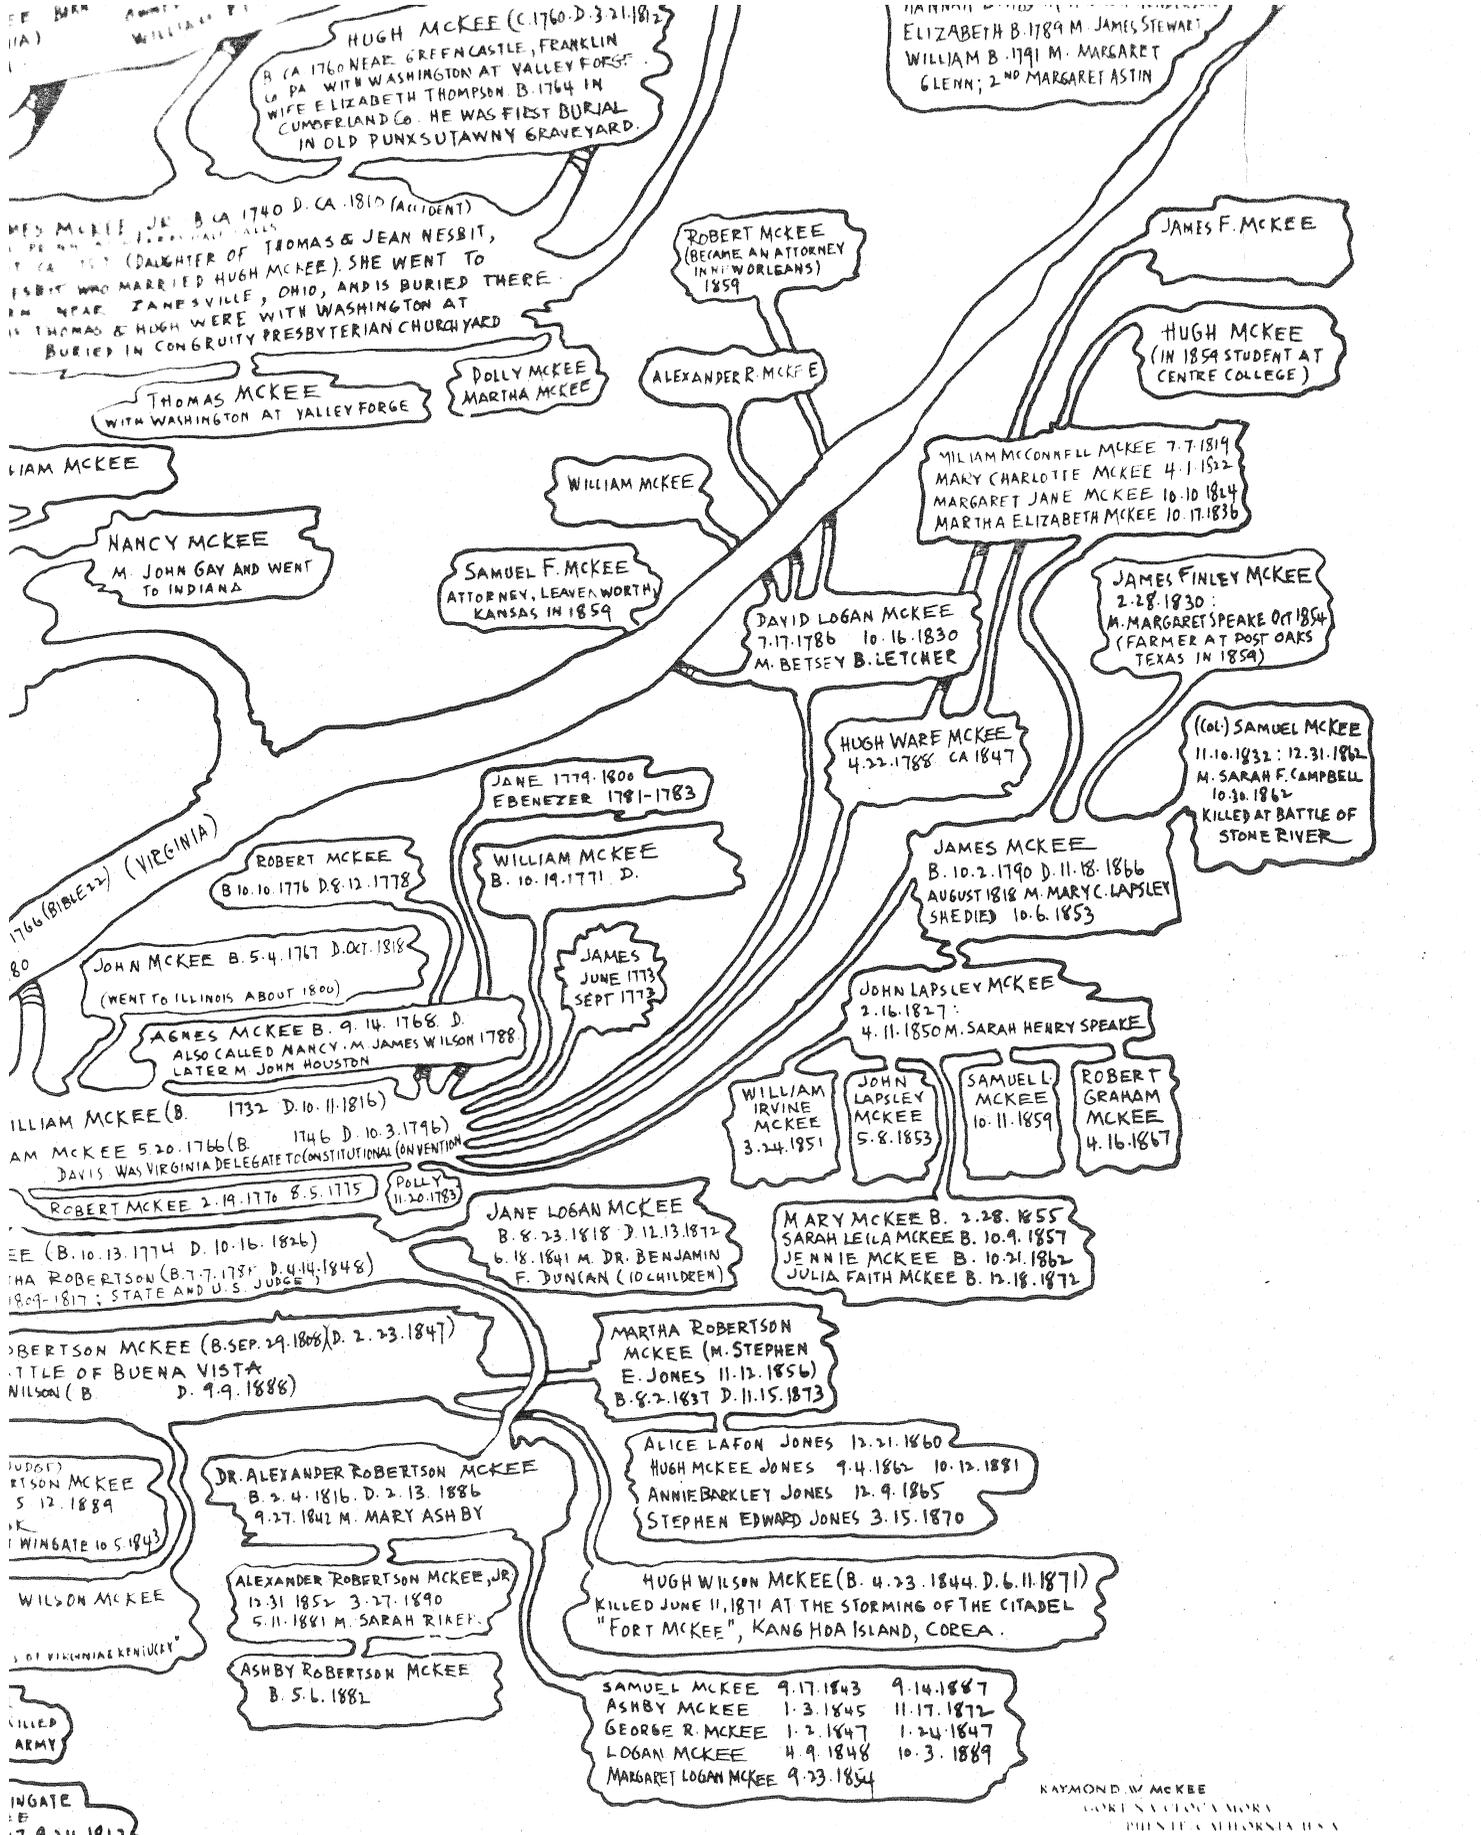 HUGH MCKEE (C.1760-D.3.21.1812)
B CA 1760 NEAR GREENCASTLE, FRANKLIN
CO PA WITH WASHINGTON AT VALLEY FORGE.
WIFE ELIZABETH THOMPSON B.1764 IN
CUMBERLAND CO. HE WAS FIRST BURIAL
IN OLD PUNXSUTAWNY GRAVEYARD.
ELIZABETH B.1789 M. JAMES STEWART
WILLIAM B.1791 M. MARGARET
GLENN; 2ND MARGARET ASTIN
MCKEE, JR. B CA 1740 D. CA. 1810 (ACCIDENT)
(DAUGHTER OF THOMAS & JEAN NESBIT,
WHO MARRIED HUGH MCKEE). SHE WENT TO
NEAR ZANESVILLE, OHIO, AND IS BURIED THERE
THOMAS & HUGH WERE WITH WASHINGTON AT
BURIED IN CONGRUITY PRESBYTERIAN CHURCHYARD
THOMAS MCKEE
WITH WASHINGTON AT VALLEY FORGE
DOLLY MCKEE
MARTHA MCKEE
ROBERT MCKEE
(BECAME AN ATTORNEY
IN NEW ORLEANS)
1859
ALEXANDER R. MCKEE
JAMES F. MCKEE
HUGH MCKEE
(IN 1859 STUDENT AT
CENTRE COLLEGE)
LIAM MCKEE
NANCY MCKEE
M. JOHN GAY AND WENT
TO INDIANA
WILLIAM MCKEE
SAMUEL F. MCKEE
ATTORNEY, LEAVENWORTH,
KANSAS IN 1859
MILIAM MCCONNELL MCKEE 7.7.1819
MARY CHARLOTTE MCKEE 4.1.1822
MARGARET JANE MCKEE 10.10 1824
MARTHA ELIZABETH MCKEE 10.17.1836
DAVID LOGAN MCKEE
7.17.1786 10.16.1830
M. BETSEY B. LETCHER
JAMES FINLEY MCKEE
2.28.1830:
M. MARGARET SPEAKE OCT 1854
(FARMER AT POST OAKS
TEXAS IN 1859)
HUGH WARE MCKEE
4.22.1788 CA 1847
(COL.) SAMUEL MCKEE
11.10.1832: 12.31.1862
M. SARAH F. CAMPBELL
10.30.1862
KILLED AT BATTLE OF
STONE RIVER
JANE 1779-1800
EBENEZER 1781-1783
1766 (BIBLE 22) (VIRGINIA)
80
ROBERT MCKEE
B 10.10.1776 D.8.12.1778
WILLIAM MCKEE
B. 10.19.1771 D.
JAMES MCKEE
B. 10.2.1790 D. 11.18.1866
AUGUST 1818 M. MARY C. LAPSLEY
SHE DIED 10.6.1853
JOHN MCKEE B. 5.4.1767 D.OCT.1818
(WENT TO ILLINOIS ABOUT 1800)
JAMES
JUNE 1773
SEPT 1773
AGNES MCKEE B. 9.14.1768. D.
ALSO CALLED NANCY. M. JAMES WILSON 1788
LATER M. JOHN HOUSTON
JOHN LAPSLEY MCKEE
2.16.1827:
4.11.1850 M. SARAH HENRY SPEAKE
WILLIAM
IRVINE
MCKEE
3.24.1851
JOHN
LAPSLEY
MCKEE
5.8.1853
SAMUEL L.
MCKEE
10.11.1859
ROBERT
GRAHAM
MCKEE
4.16.1867
ILLIAM MCKEE (B. 1732 D.10.11.1816)
AM MCKEE 5.20.1766 (B. 1746 D. 10.3.1796)
DAVIS WAS VIRGINIA DELEGATE TO CONSTITUTIONAL CONVENTION
ROBERT MCKEE 2.19.1770 8.5.1775
POLLY
11.20.1783
JANE LOGAN MCKEE
B. 8.23.1818 D.12.13.1872
6.18.1841 M. DR. BENJAMIN
F. DUNCAN (10 CHILDREN)
MARY MCKEE B. 2.28.1855
SARAH LEILA MCKEE B. 10.9.1857
JENNIE MCKEE B. 10.21.1862
JULIA FAITH MCKEE B. 12.18.1872
EE (B.10.13.1774 D. 10.16.1826)
HA ROBERTSON (B.7.7.178 D.4.14.1848)
1809-1817; STATE AND U.S. JUDGE,
OBERTSON MCKEE (B.SEP. 29.1808)(D. 2.23.1847)
TTLE OF BUENA VISTA
WILSON (B. D. 9.9.1888)
MARTHA ROBERTSON
MCKEE (M. STEPHEN
E. JONES 11.12.1856)
B.8.2.1837 D.11.15.1873
ALICE LAFON JONES 12.21.1860
HUGH MCKEE JONES 9.4.1862 10.12.1881
ANNIE BARKLEY JONES 12.9.1865
STEPHEN EDWARD JONES 3.15.1870
JUDGE)
RTSON MCKEE
5 12.1889
WINGATE 10 5.1843
DR. ALEXANDER ROBERTSON MCKEE
B. 2.4.1816. D. 2.13.1886
9.27.1842 M. MARY ASHBY
WILSON MCKEE
S OF VIRGINIA & KENTUCKY"
ALEXANDER ROBERTSON MCKEE, JR
12.31 1852 3.27.1890
5.11.1881 M. SARAH RIKER.
HUGH WILSON MCKEE (B. 4.23.1844. D.6.11.1871)
KILLED JUNE 11, 1871 AT THE STORMING OF THE CITADEL
"FORT MCKEE", KANG HOA ISLAND, COREA.
ASHBY ROBERTSON MCKEE
B. 5.6.1882
SAMUEL MCKEE 9.17.1843 9.14.1887
ASHBY MCKEE 1.3.1845 11.17.1872
GEORGE R. MCKEE 1.2.1847 1.24.1847
LOGAN MCKEE 4.9.1848 10.3.1889
MARGARET LOGAN MCKEE 9.23.1854
KILLED
ARMY
INGATE
RAYMOND W MCKEE